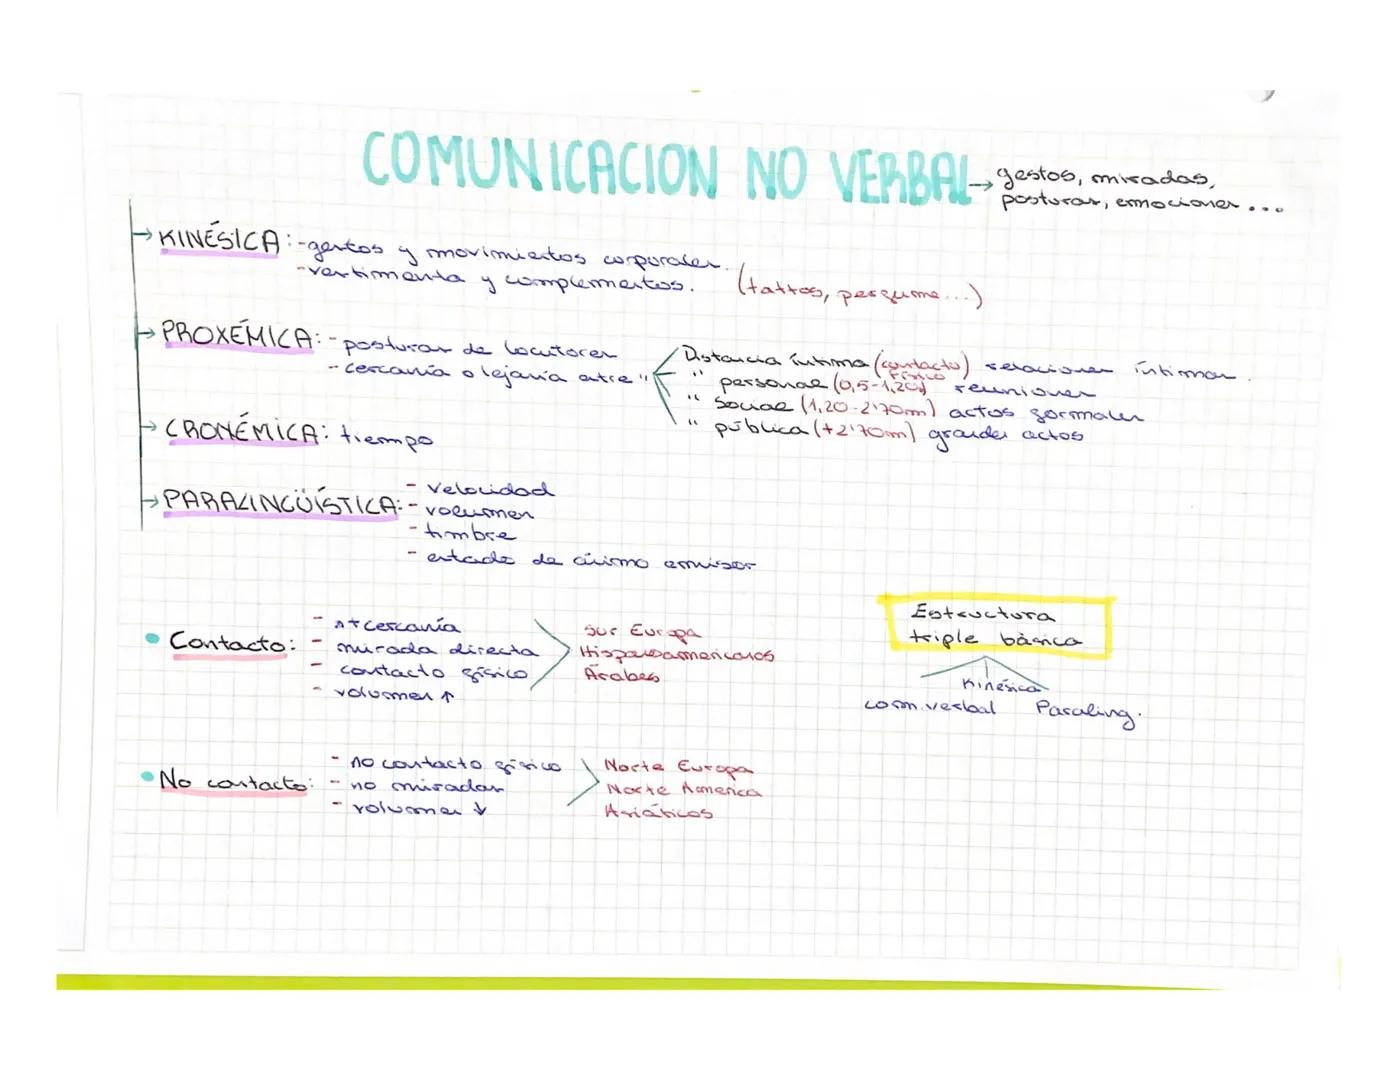 COMUNICACION NO VERBAL → gestos, miradas,
posturas, emociones...
→ KINÉSICA: - gestos y movimientos corporales.
- vestimenta y complementos. (tattos, perfume...)
→ PROXÉMICA: - posturas de locutores
- cercanía o lejanía entre "
Distancia íntima (contacto físico) relaciones íntimas.
" personal (0,5-1,20) reuniones
" social (1,20-2'70m) actos formales
" pública (+2'70m) grandes actos
→ CRONÉMICA: tiempo
→ PARALINGÜÍSTICA: - velocidad
- volumen
- timbre
- estado de ánimo emisor
• Contacto: - ↑+ cercanía
- mirada directa
- contacto físico
- volumen ↑
Sur Europa
Hispanoamericanos
Árabes
Estructura
triple básica
Kinésica
com. verbal Paraling.
• No contacto: - no contacto físico
- no miradas
- volumen ↓
Norte Europa
Norte America
Asiáticos